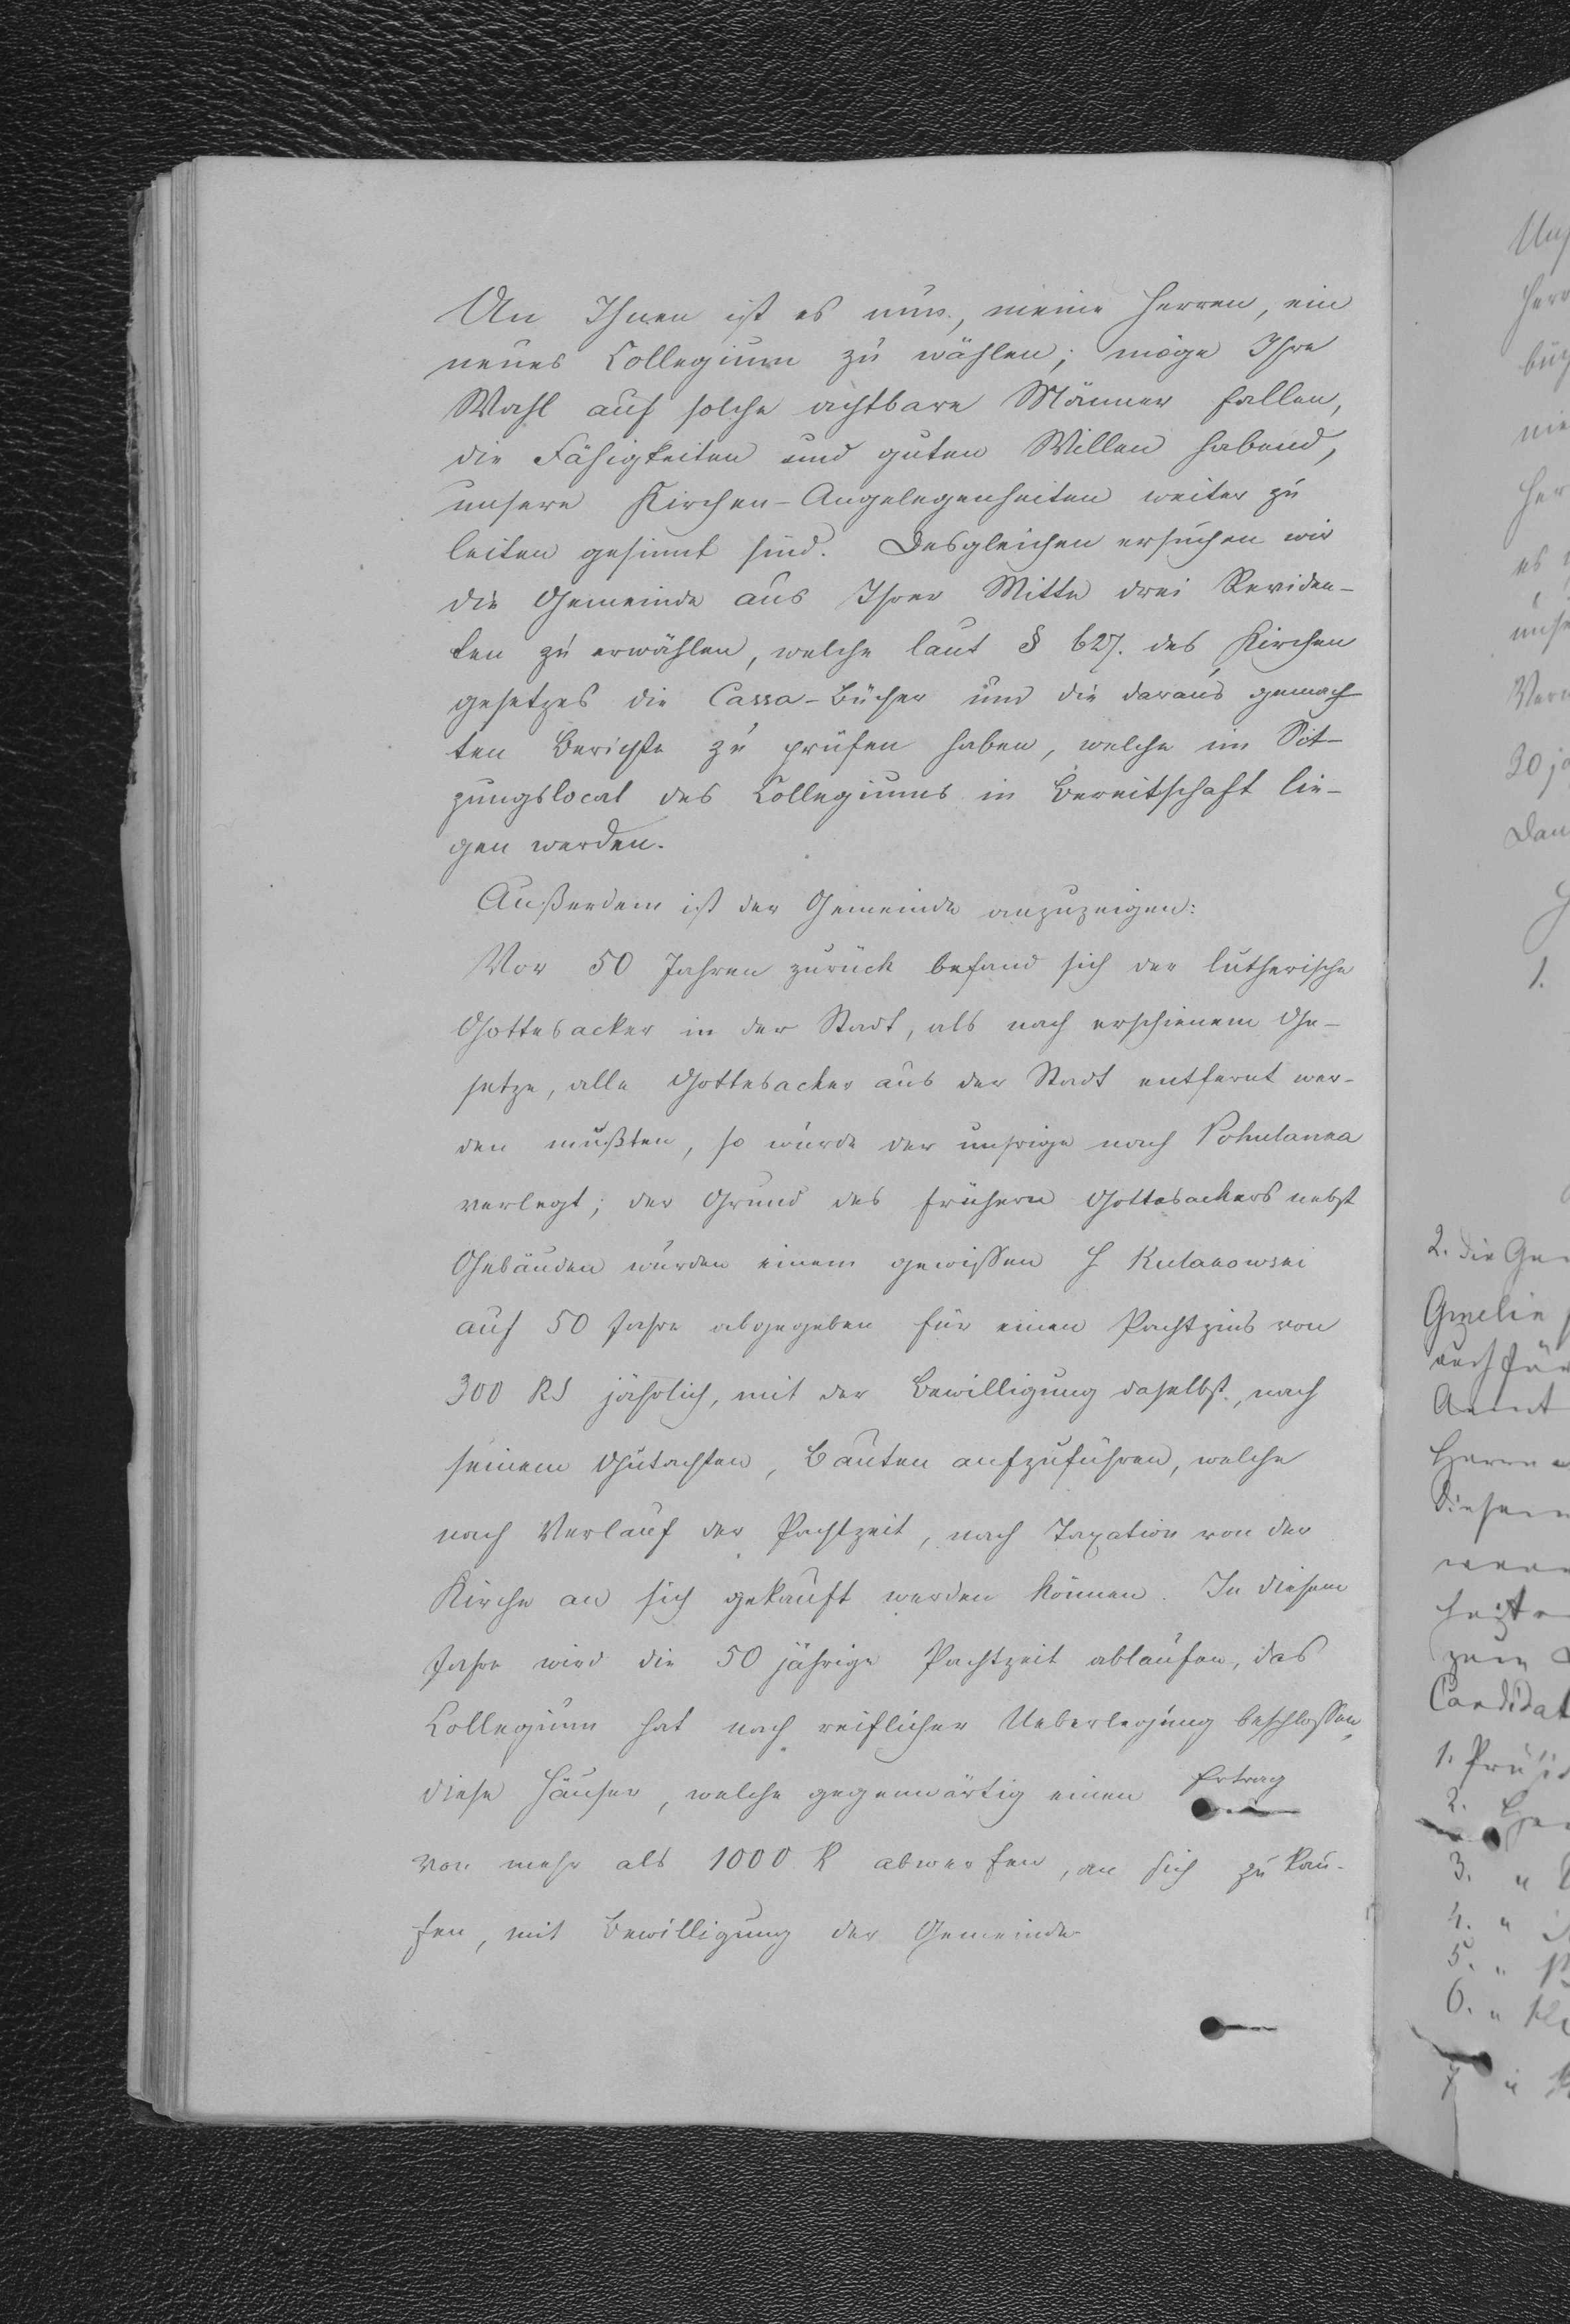 An Ihnen ist es nun, meine Herren, ein
neues Collegium zu wählen; möge Ihre
Wahl auf solche achtbare Männer fallen,
die Fähigkeiten und guten Willen habend,
unsere Kirchen-Angelegenheiten weiter zu
leiten gesinnt sind. Desgleichen ersuchen wir
die Gemeinde aus Ihrer Mitte drei Reviden-
ten zu erwählen, welche laut § 627. des Kirchen
gesetzes die Cassa-Bücher und die daraus gemach
ten Berichte zu prüfen haben, welche im Sit-
zungslocal des Collegiums in Bereitschaft lie-
gen werden.
Außerdem ist der Gemeinde anzuzeigen:
Vor 50 Jahren zurück befand sich der lutherische
Gottesacker in der Stadt, als nach erschienem Ge-
setze, alle Gottesacker aus der Stadt entfernt wer-
den mußten, so wurde der unsrige nach Pohulanka
verlegt; der Grund des frühern Gottesackers nebst
Gebäuden wurden einem gewissen H Kulakowski
auf 50 Jahre abgegeben für einen Pachtzins von
300 RS jährlich, mit der Bewilligung daselbst, nach
seinem Gutachten, Bauten aufzuführen, welche
nach Verlauf der Pachtzeit, nach Taxation von der
Kirche an sich gekauft werden können. In diesem
Jahre wird die 50 jährige Pachtzeit ablaufen, das
Collegium hat nach reiflicher Ueberlegung beschlossen,
diese Häuser, welche gegenwärtig einen Ertrag
von mehr als 1000 R abwerfen, an sich zu kau-
fen, mit Bewilligung der Gemeinde
her
es
30 j
1.
2. die Ge
Gmelin
Amt
diesem
zum
Candidat
1. Präsid
2.
3. "
4. "
5. "
6. "
7 "